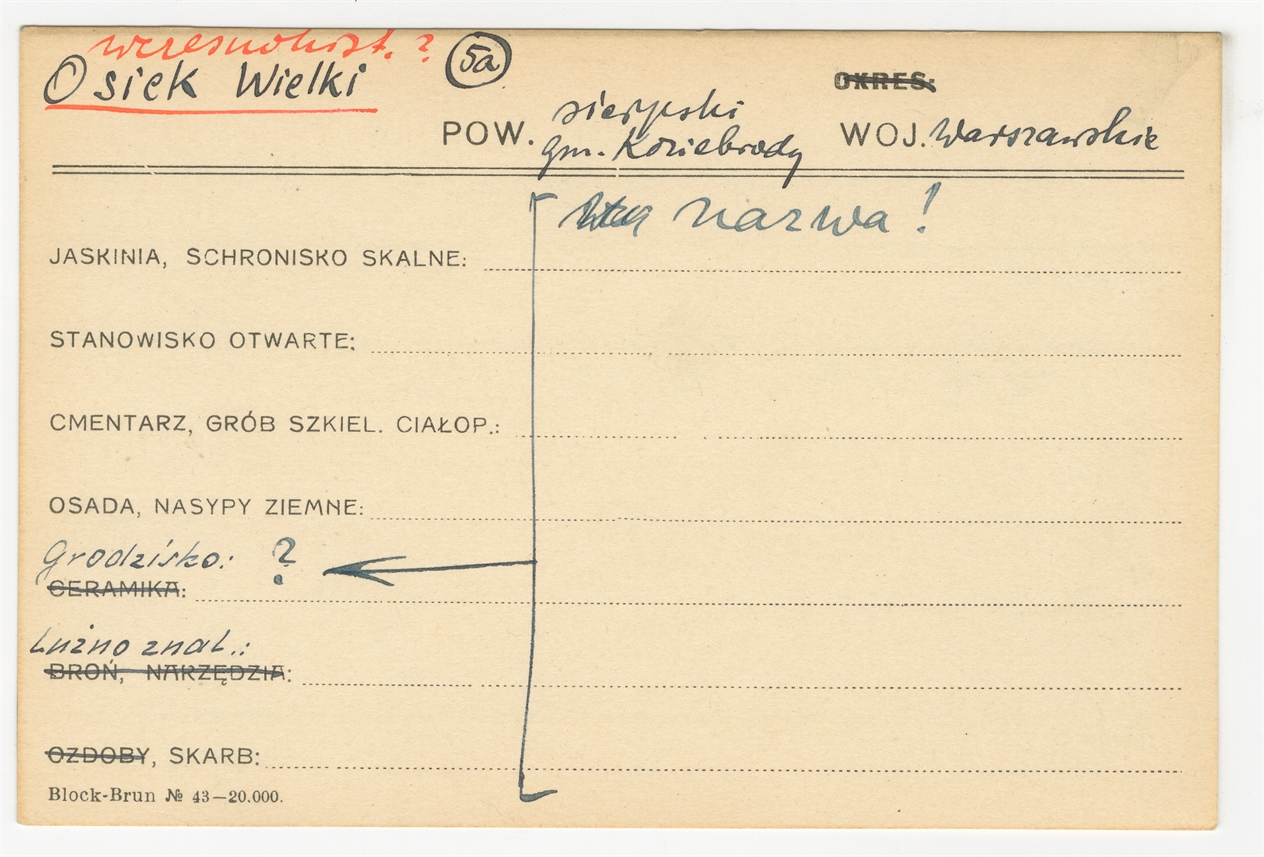 wczesnohist. ?
Osiek Wielki 5a
OKRES:
POW. sierpski WOJ. Warszawskie
gm. Koziebrody
nazwa!
JASKINIA, SCHRONISKO SKALNE:
STANOWISKO OTWARTE:
CMENTARZ, GRÓB SZKIEL. CIAŁOP.:
OSADA, NASYPY ZIEMNE:
Grodzisko: ?
CERAMIKA:
Luźno znal.:
BROŃ, NARZĘDZIA:
OZDOBY, SKARB:
Block-Brun № 43—20.000.